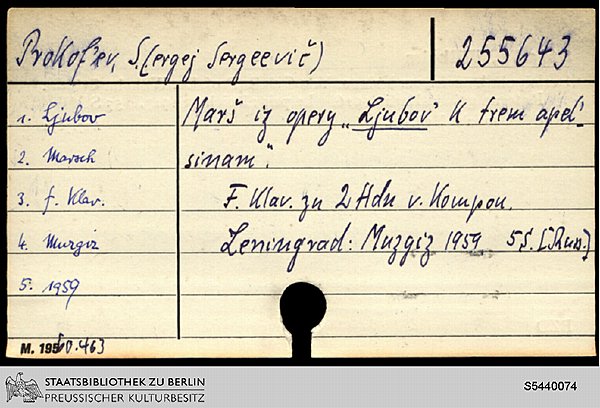 Prokof'ev, S.(ergej Sergeevič) 255643
1. Ljubov
2. Marsch
3. f. Klav.
4. Muzgiz
5. 1959
Marš iz opery „Ljubov' k trem apel'-
sinam“.
F. Klav. zu 2 Hdn v. Kompon.
Leningrad: Muzgiz 1959 5 S. [Russ.]
M. 1960.463
STAATSBIBLIOTHEK ZU BERLIN
PREUSSISCHER KULTURBESITZ
S5440074